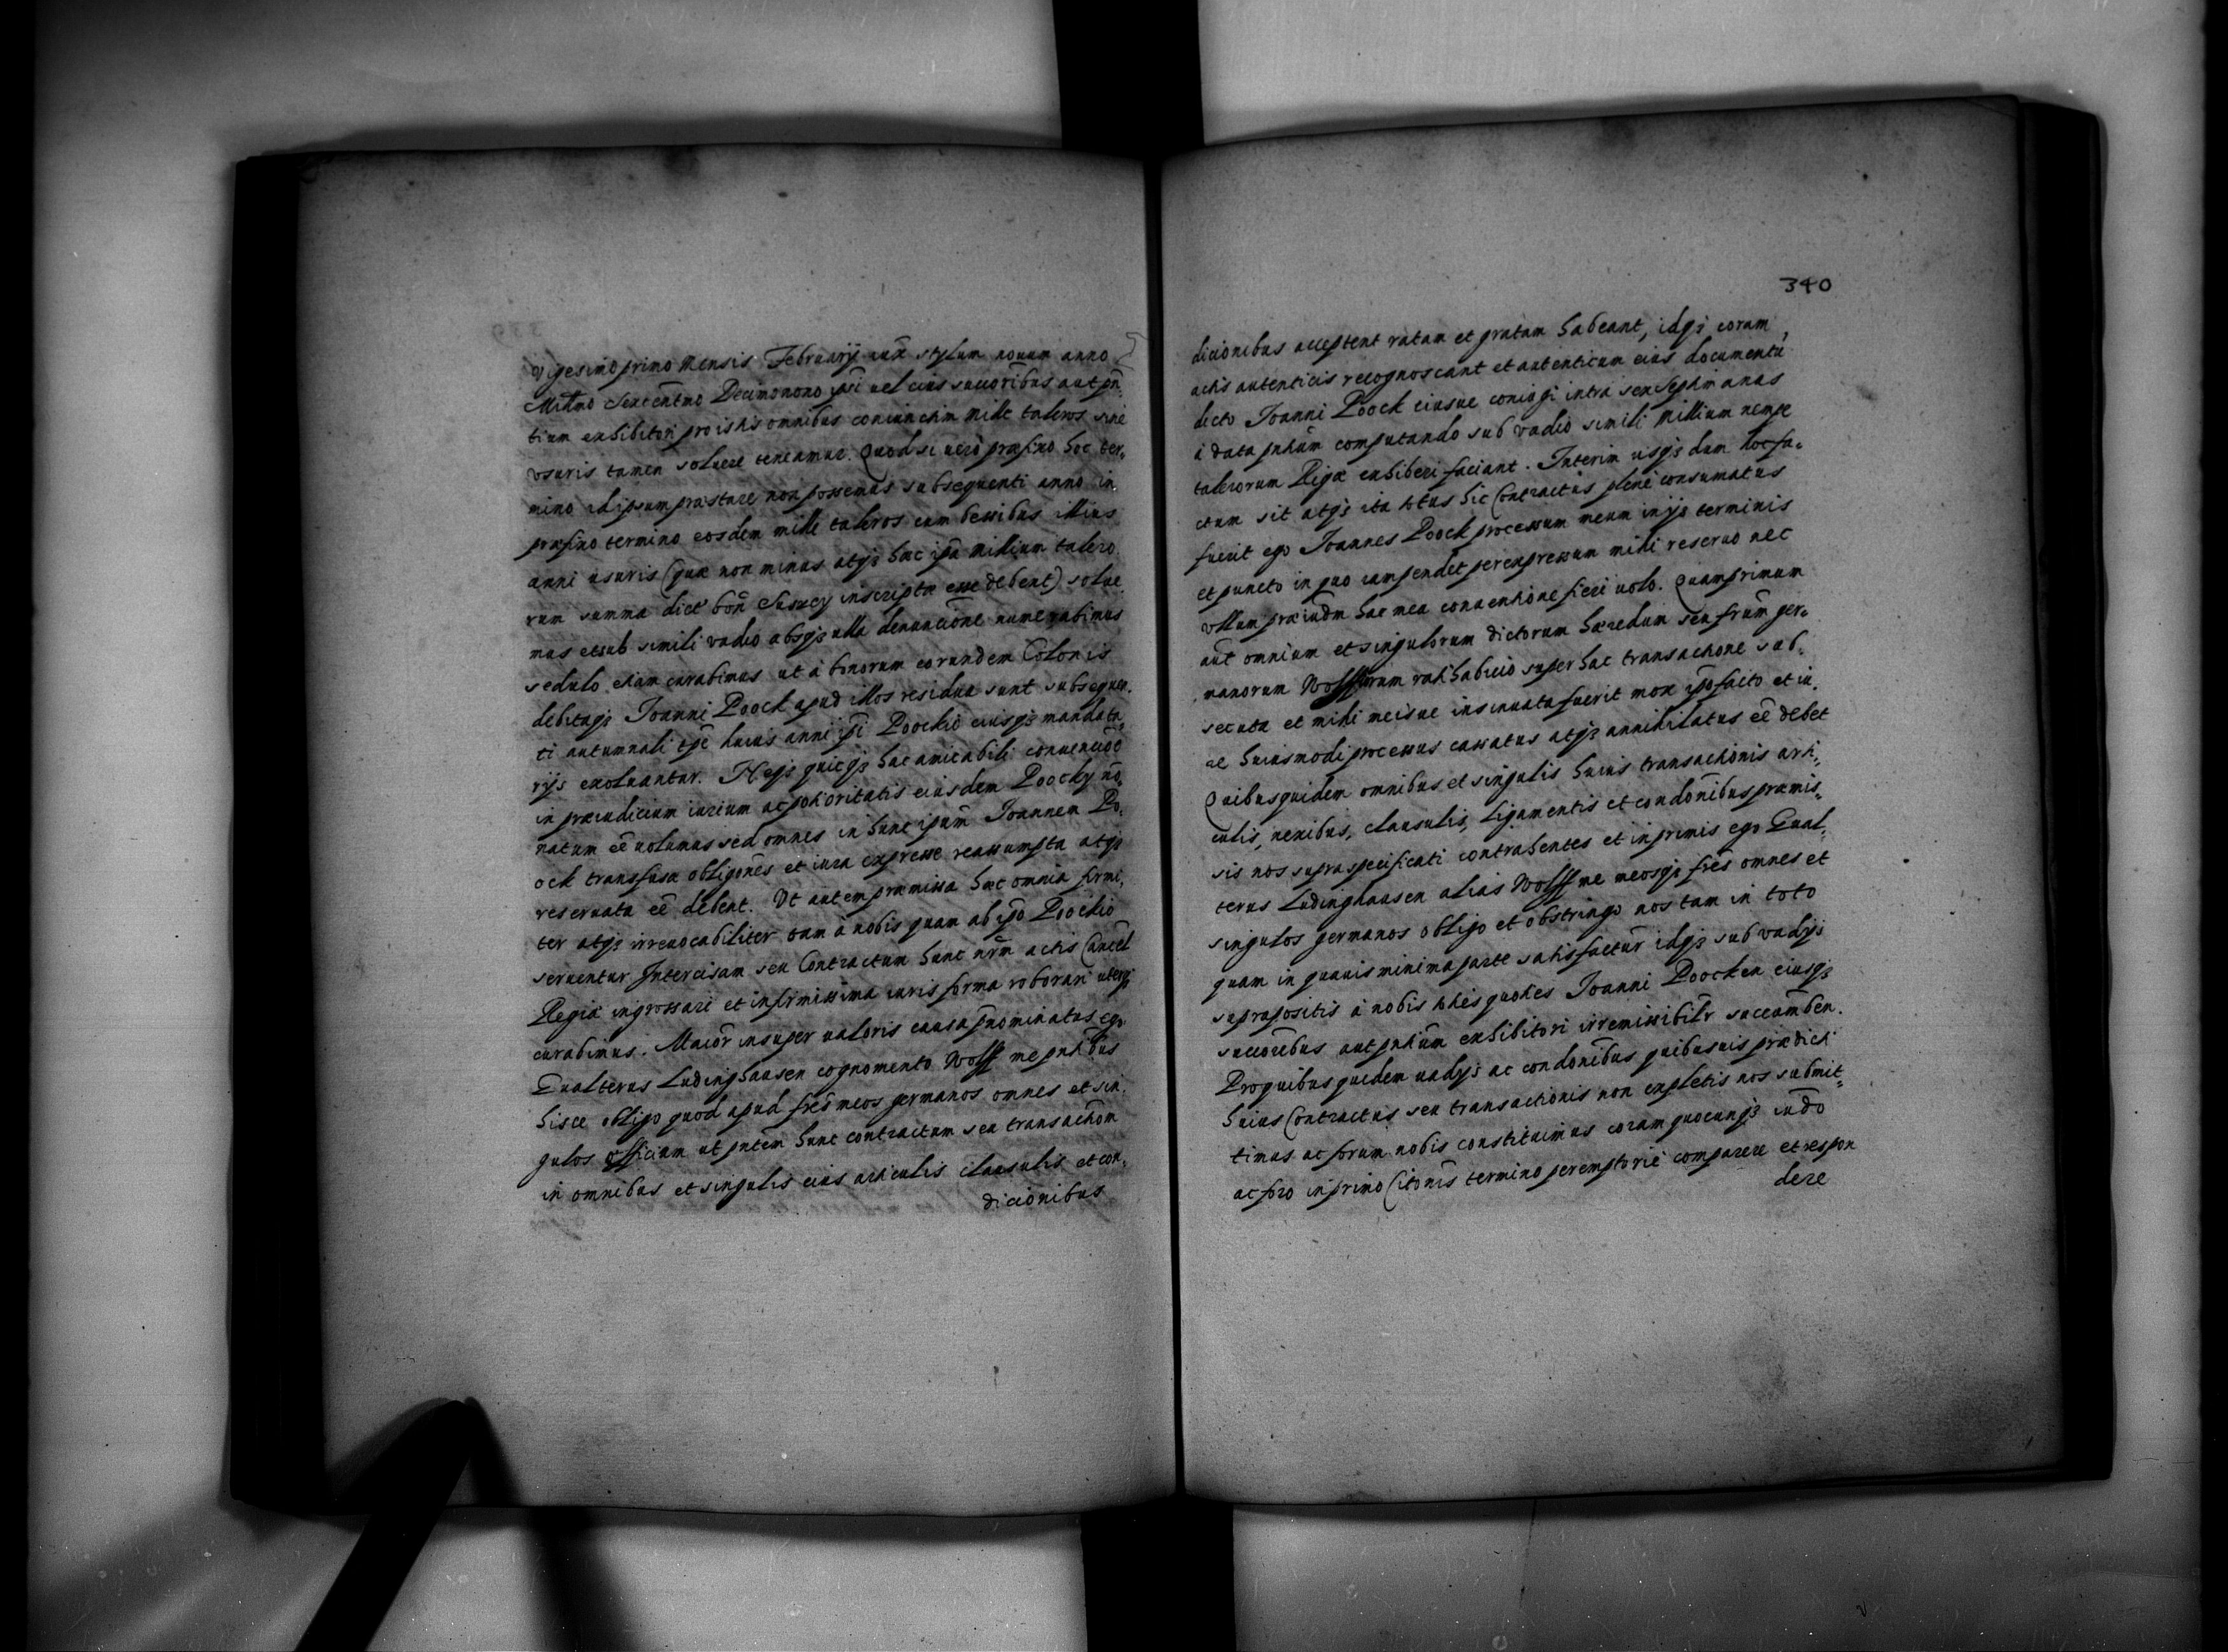 vigesimo primo Mensis Februarij iux stylum nouum anno
Millmo Sexcentmo Decimonono ipsi uel eius succoribus aut pñ
tium exhibitori pro istis omnibus coniunctim Mille taleros sine
vsuris tamen soluere teneamur. Quod si uero præfixo hoc ter,
mino id ipsum præstare non possemus subsequenti anno in
præfixo termino eosdem mille taleros cum bessibus illius
anni usuris (quæ non minus atqz hæc ipā Millium talero
rum summa dict bon̄ Sussey inscripta esse debent) solue
mus et sub simili vadio absqz ulla denuncione numerabimus
sedulo etiam curabimus ut à bonorum eorundem Colonis
debitaqz Joanni Poock apud illos residua sunt subsequen,
ti autumnali tpe huius anni ipi Poockio eiusqz mandata
rijs exoluantur. Neqz quicqz hac amicabili conuencioe
in præiudicium iurium ac pohoritatis eiusdem Poocky no,
natum eē uolumus sed omnes in hunc ipum Joannem Po,
ock transfusæ obligones et iura expresse reassumpta atqz
reseruata eē debent. Vt autem præmissa hæc omnia firmi,
ter atqz irreuocabiliter tam à nobis quam ab ipo Poockio
seruentur Intercisam seu Contractum hunc nrm actis Cancel
Regiæ ingrossari et in firmissima iuris forma roborari uterqz
curabimus. Maior insuper ualoris causa pnominatus ego
Gualterus Ludinghausen cognomento Wolff me pntibus
hisce obligo quod apud fres meos germanos omnes et sin
gulos efficiam ut pntem hunc contractum seu transaction
in omnibus et singulis eius articulis clausulis et con,
dicionibus
340
dicionibus acceptent ratam et gratam habeant, idqz coram
actis autenticis recognoscant et autenticum eius documentū
dicto Joanni Poock eiusue coniugi intra sex septimanas
à data pntium computando sub vadio simili Millium nempe
talerorum Rigæ exhiberi faciant. Interim usqz dum hoc fa=
ctum sit atqz ita totus hic Contractus plenè consumatus
fuerit ego Joannes Poock processum meum in ijs terminis
et puncto in quo iam pendet per expressum mihi reseruo nec
vllum præiudm hac mea conuentione fieri uolo. Quamprimum
aut omnium et singulorum dictorum hæredum seu frum ger,
manorum Wolffiorum ratihabicio super hac transactione sub,
secuta et mihi meisue insinuata fuerit mox ipo facto et iu,
re huiusmodi processus cassatus atqz annihilatus eē debet
Quibus quidem omnibus et singulis huius transactionis arti,
culis, nexibus, clausulis, ligamentis et condonibus præmis,
sis nos supraspecificati contrahentes et inprimis ego Gual,
terus Ludinghausen alias Wolff me meosqz fres omnes et
singulos germanos obligo et obstringo nos tam in toto
quam in quauis minima parte satisfactur idqz sub vadijs
suprapositis à nobis toties quoties Joanni Poocken eiusqz
succoribus aut pntium exhibitori irremissibilr succumben.
Pro quibus quidem uadijs ac condonibus quibusuis prædicti
huius Contractus seu transactionis non expletis nos submit=
timus ac forum nobis constituimus coram quocunqz iudo
ac foro in primo Citonis termino peremptoriè comparere et respon
dere